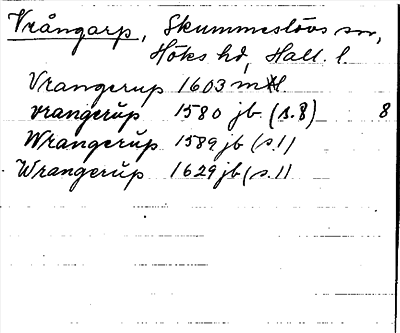 Vrångarp, Skummeslövs sn,
Höks hd, Hall. l.
Vrangerup 1603 mtl.
vrangerüp 1580 jb (s. 8) 8
Wrangerüp 1589 jb (s. 1)
Wrangerüp 1629 jb (s. 1)